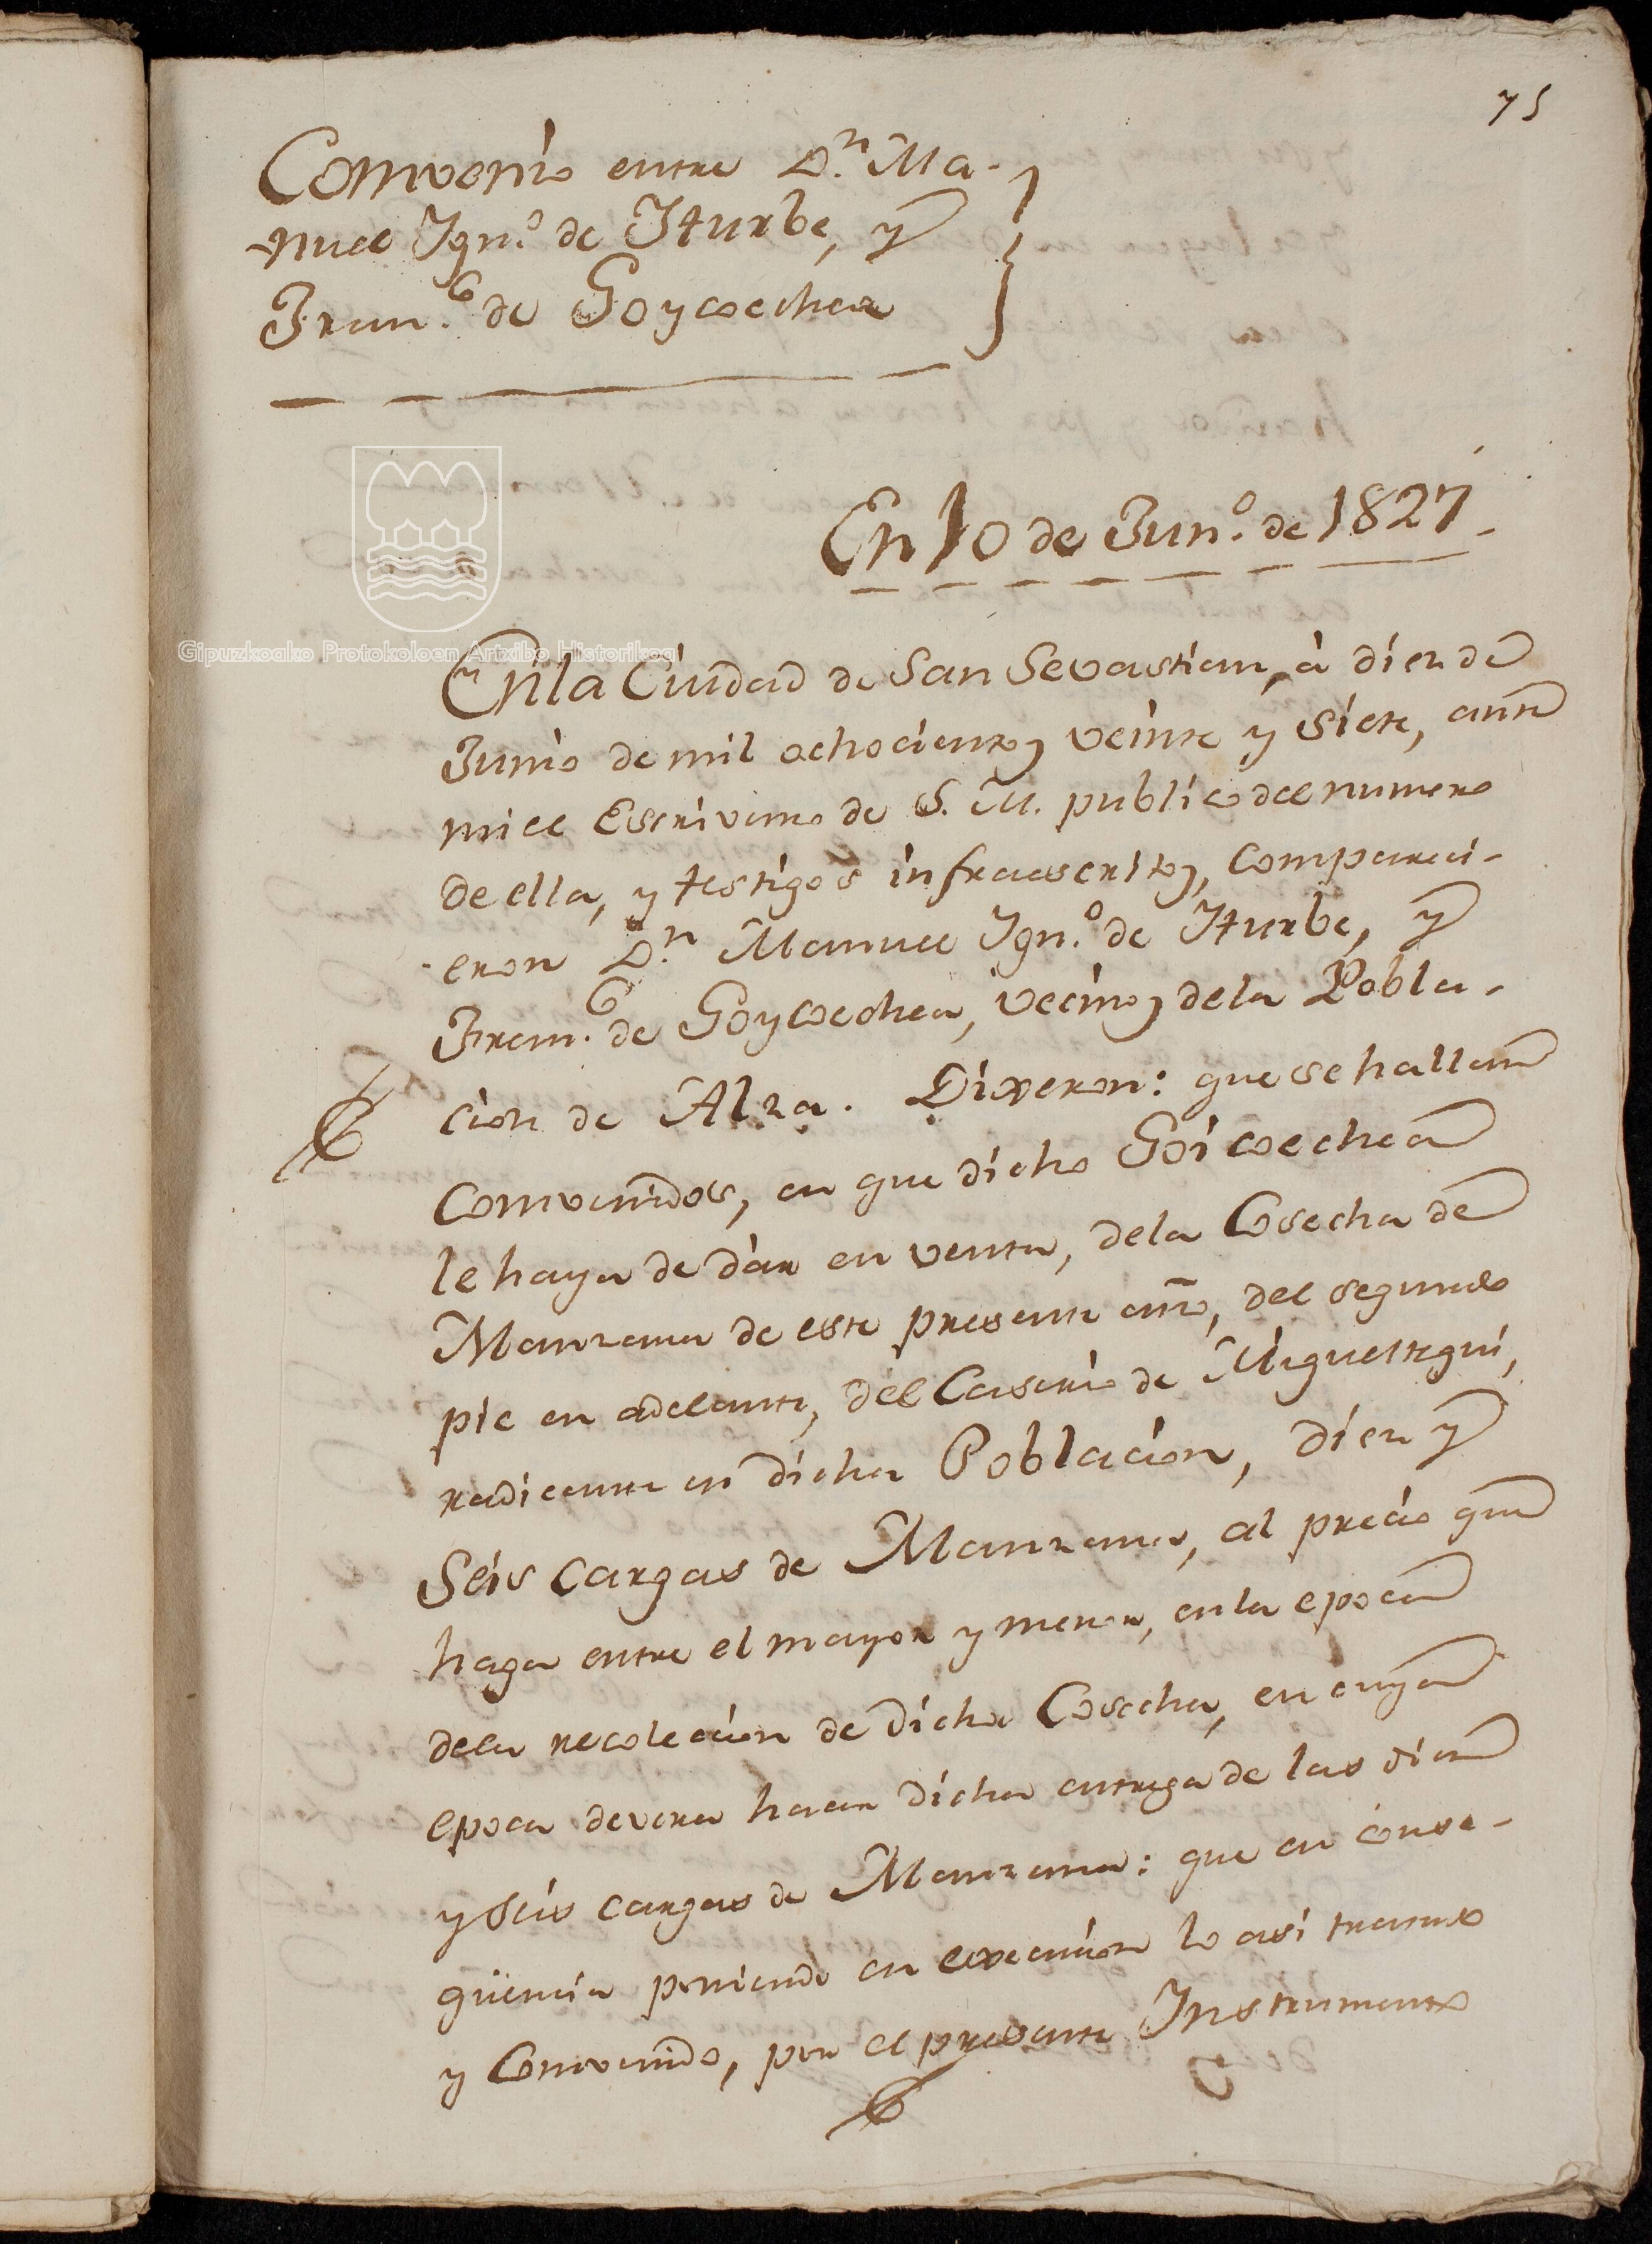 75
Convenio entre D.n Ma-
nuel Ygn.o de Yturbe, y
Fran.co de Goycoechea
En 10 de Jun.o de 1827
Gipuzkoako Protokoloen Artxibo Historikoa
En la Ciudad de San Sevastian, à diez de
Junio de mil ochocientos veinte y siete, ante
mi el Escrivano de S. M. publico del numero
de ella, y testigos infraescritos, compareci-
eron D.n Manuel Ygn.o de Yturbe, y
Fran.co de Goycoechea, vecinos de la Pobla-
cion de Alza. Dixeron: que se hallan
convenidos, en que dicho Goicoechea
le haya de dàr en venta, de la Cosecha de
Manzana de este presente año, del segundo
pie en adelante, del Caserio de Migueltegui,
radicante en dicha Poblacion, diez y
seis cargas de Manzana, al precio que
haga entre el mayor y menor, en la epoca
de la recoleccion de dicha Cosecha, en cuya
epoca devera hacer dicha entrega de las diez
y seis cargas de Manzana: que en conse-
qüencia poniendo en execucion lo asi tratado
y Convenido, por el presente Instrumento